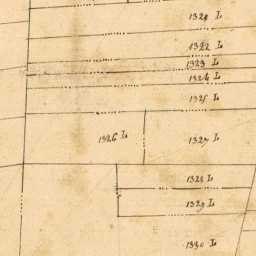 1321 L
1322 L
1323 L
1324 L
1325 L
1326 L
1327 L
1328 L
1329 L
1330 L